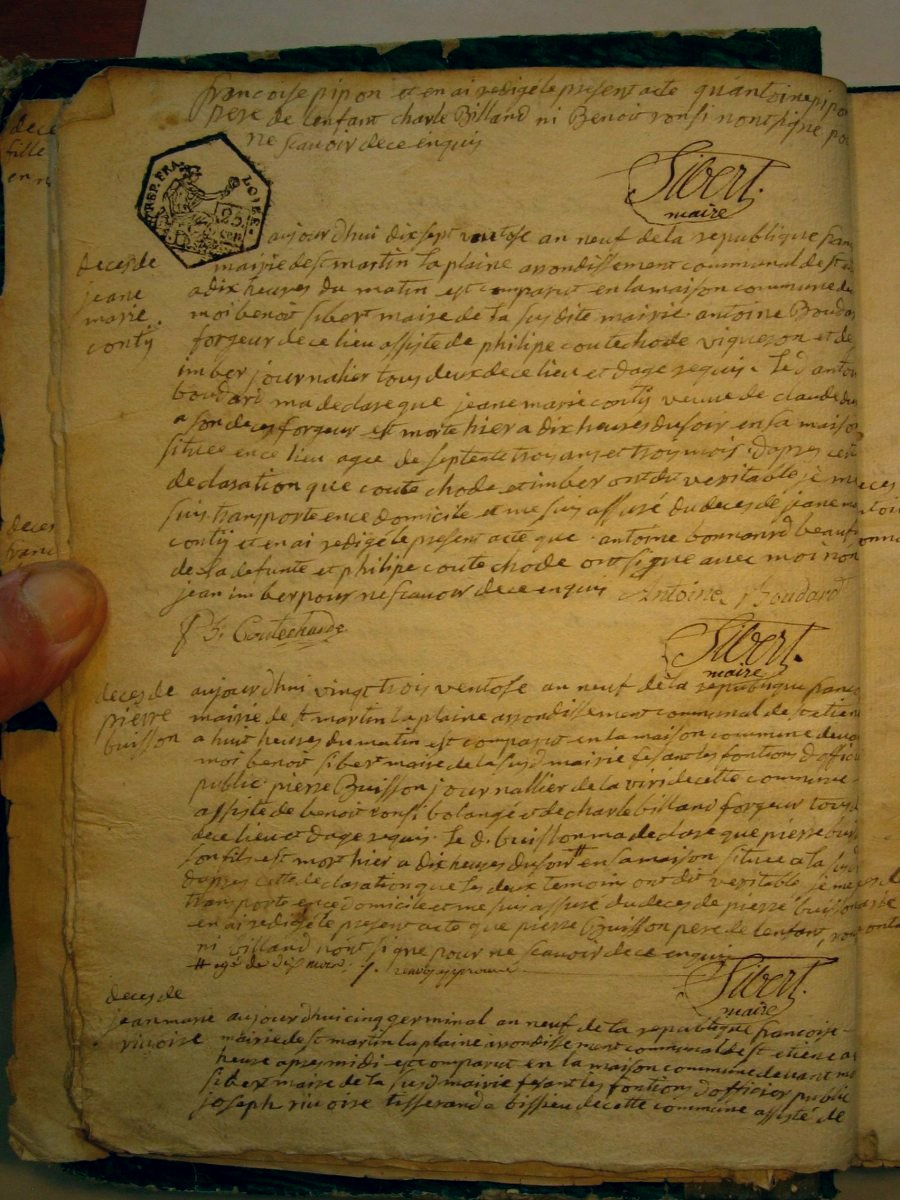 francoise pipon et en ai redigé le present acte qu'antoine pipon
pere de lenfant charle Billand ni Benoit ronsi nont signe po
ne scavoir de ce enquis
Sibert
maire
REP. FRA.
25
CEN
deces de
jeane
marie
contÿ
aujourdhui dix sept ventose an neuf de la republique fran
mairie de st martin la plaine arondissement communal de st
a dix heures du matin est comparut en la maison commune de
moi benoit sibert maire de la susdite mairie antoine Boudar
forgeur de ce lieu assiste de philipe coutechode vigneron et de
imber journalier tous deux de ce lieu et dage requis. Le d antoi
boudard ma declare que jeane marie contÿ veuve de claude
a son deces forgeur est morte hier a dix heures du soir en sa maison
situee en ce lieu agee de septente trois ans et trois mois. Dapres cette
declaration que coutechode et imber ont dit veritable je me
suis transporte en ce domicile et me suis assuré du deces de jeane m
contÿ et en ai redigé le present acte que antoine bonnard beaufi
de la defunte et philipe coutechode ont signe avec moi non
jean imber pour ne scavoir de ce enquis Antoine Boudard
Ph. Coutechaude
Sibert
maire
deces de
pierre
buisson
aujourdhui vingt trois ventose an neuf de la republique franco
mairie de st martin la plaine arondissement communal de st etiene
a huit heures du matin est comparut en la maison commune devan
moi benoit sibert maire de la susd mairie fesant les fontions d'offici
public pierre Buisson journallier de la vire de cette commune
assiste de benoit ronsi bolangé et de charle billand forgeur tous d
de ce lieu et dage requis. Le d. buisson ma declare que pierre buis
son fils est mort hier a dix heures du soir # en sa maison situee a la
dapres cette declaration que les deux temoins ont dit veritable je me
transporte en ce domicile et me suis assuré du deces de pierre buisson
en ai redigé le present acte que pierre Buisson pere de lenfant, ron
ni billand nont signe pour ne scavoir de ce enquis
# agé de dix mois. renvoy approuvé
Sibert
maire
deces de
jeanmarie
rivoire
aujourdhui cinq germinal an neuf de la republique francoise
mairie de st martin la plaine arondissement communal de st etiene a
heure apres midi est comparut en la maison commune devant moi
sibert maire de la susd mairie fesant les fontions d'officier public
joseph rivoire tisserand a bissieu de cette commune assisté de